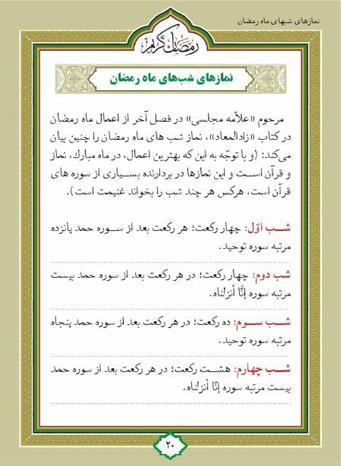 نمازهای شبهای ماه رمضان
رمضان کریم
نمازهای شب‌های ماه رمضان
مرحوم «علاّمه مجلسی» در فصل آخر از اعمال ماه رمضان
در کتاب «زادالمعاد»، نماز شب های ماه رمضان را چنین بیان
می‌کند: (و با توجّه به این که بهترین اعمال، در ماه مبارک، نماز
و قرآن است و این نمازها در بردارنده بسیاری از سوره های
قرآن است، هرکس هر چند شب را بخواند غنیمت است).
شب اوّل: چهار رکعت؛ در هر رکعت بعد از سوره حمد پانزده
مرتبه سوره توحید.
شب دوم: چهار رکعت؛ در هر رکعت بعد از سوره حمد بیست
مرتبه سوره إنّا أنزلناه.
شب سوم: ده رکعت؛ در هر رکعت بعد از سوره حمد پنجاه
مرتبه سوره توحید.
شب چهارم: هشت رکعت؛ در هر رکعت بعد از سوره حمد
بیست مرتبه سوره إنّا أنزلناه.
۲۰